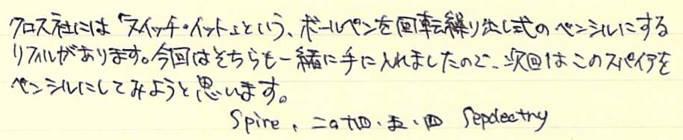 クロス社には「スイッチ・イット」という、ボールペンを回転繰り出し式のペンシルにする
リフィルがあります。今回はそちらも一緒に手に入れましたので、次回はこのスパイアを
ペンシルにしてみようと思います。
Spire、二〇十四・五・四